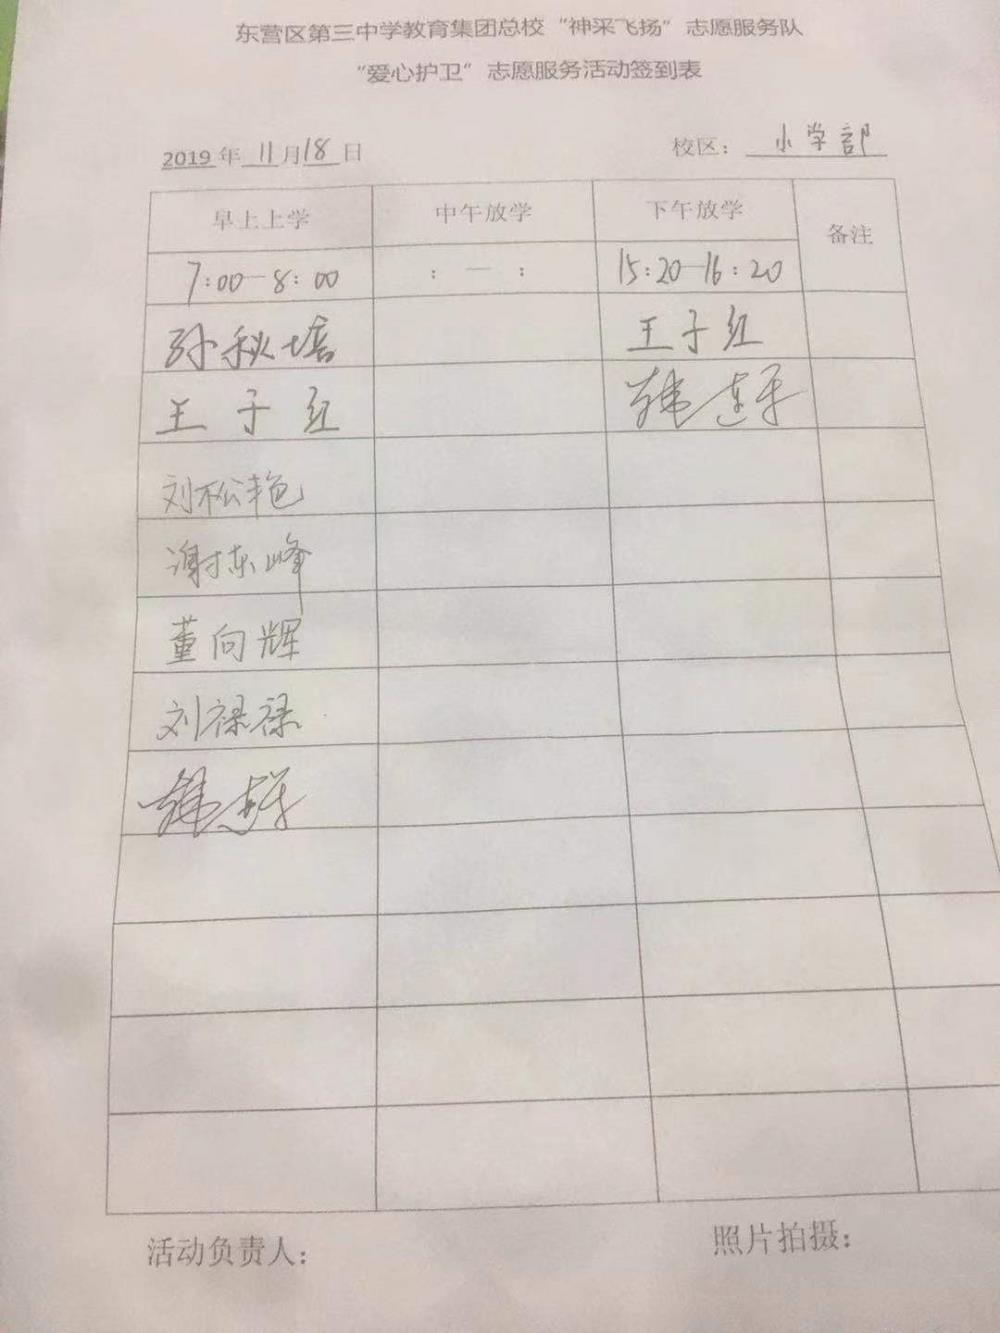 东营区第三中学教育集团总校“神采飞扬”志愿服务队
“爱心护卫”志愿服务活动签到表
2019年 11月18日 校区： 小学部
早上上学 中午放学 下午放学 备注
7:00—8:00 : — : 15:20-16:20
孙秋培 王子红
王子红 韩连平
刘松艳
谢东峰
董向辉
刘禄禄
韩
活动负责人： 照片拍摄：